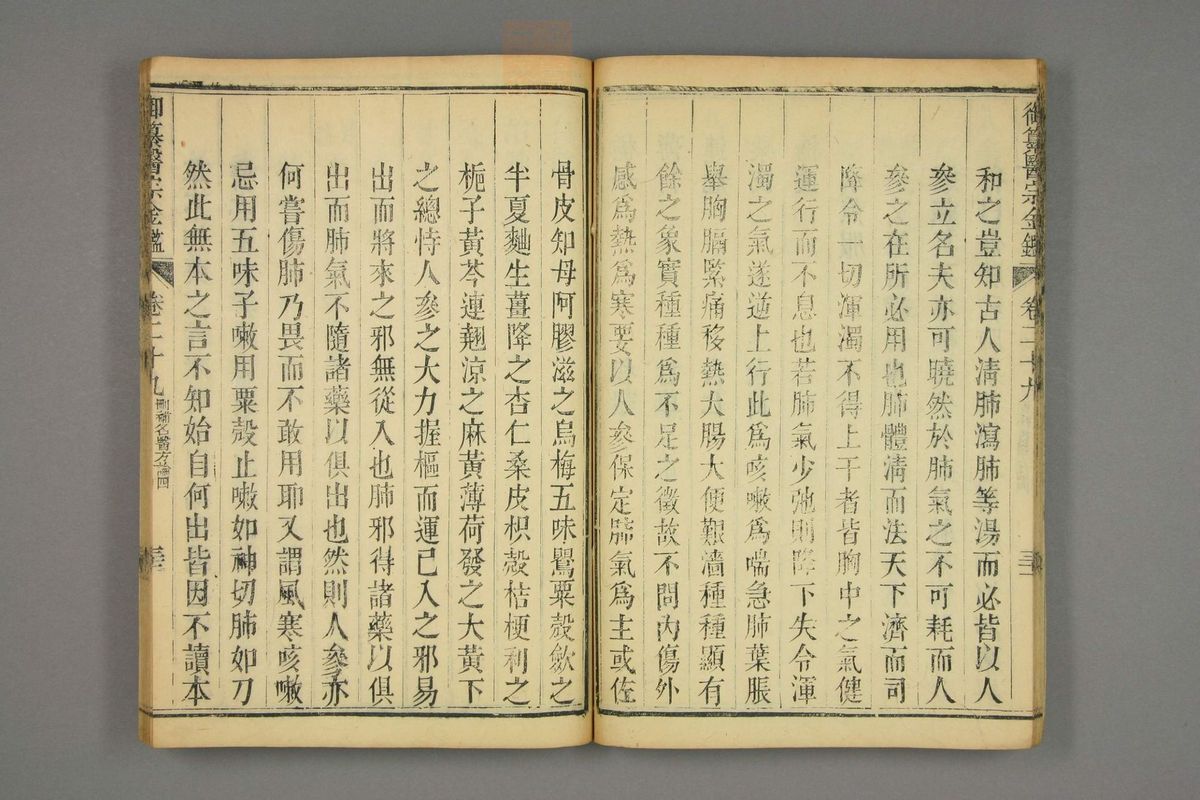 御纂醫宗金鑑 卷二十九
和之豈知古人淸肺瀉肺等湯而必皆以人
參立名夫亦可曉然於肺氣之不可耗而人
參之在所必用也肺體淸而法天下濟而司
降令一切渾濁不得上干者皆胸中之氣健
運行而不息也若肺氣少弛則降下失令渾
濁之氣遂逆上行此爲咳嗽爲喘急肺葉脹
舉胸膈緊痛移熱大腸大便艱濇種種顯有
餘之象實種種爲不足之徵故不問內傷外
感爲熱爲寒要以人參保定肺氣爲主或佐
骨皮知母阿膠滋之烏梅五味罌粟殼歛之
半夏麯生薑降之杏仁桑皮枳殼桔梗利之
梔子黃芩連翹涼之麻黃薄荷發之大黃下
之總恃人參之大力握樞而運已入之邪易
出而將來之邪無從入也肺邪得諸藥以俱
出而肺氣不隨諸藥以俱出也然則人參亦
何嘗傷肺乃畏而不敢用耶又謂風寒咳嗽
忌用五味子嗽用粟殼止嗽如神切肺如刀
然此無本之言不知始自何出皆因不讀本
御纂醫宗金鑑 卷二十九 刪補名醫方論四